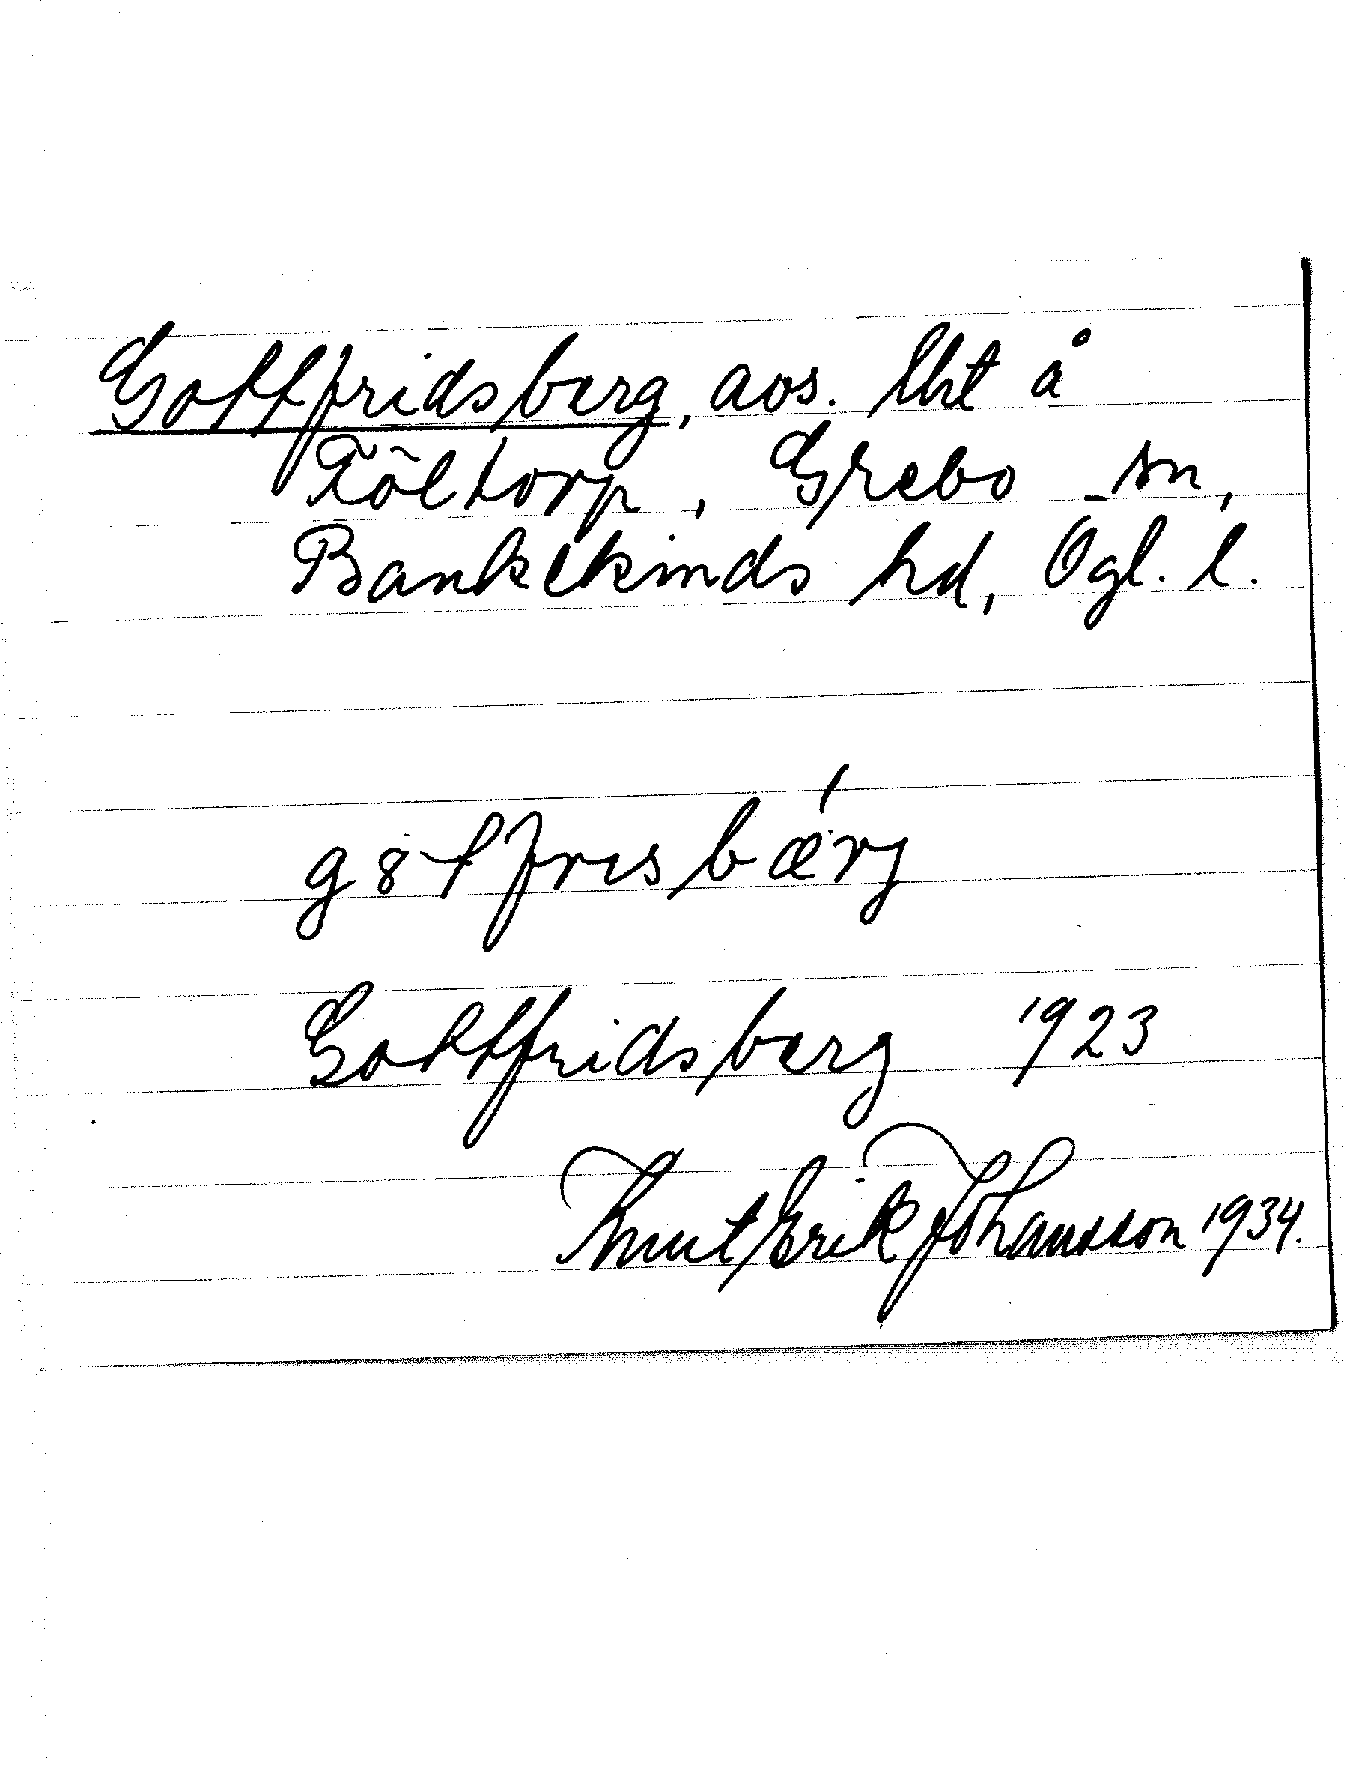 Gottfridsberg, avs. lht å
Föltorp, Grebo sn,
Bankekinds hd, Ögl. l.
g8tfrɩsbærj
Gottfridsberg 1923
Knut Erik Johansson 1934.